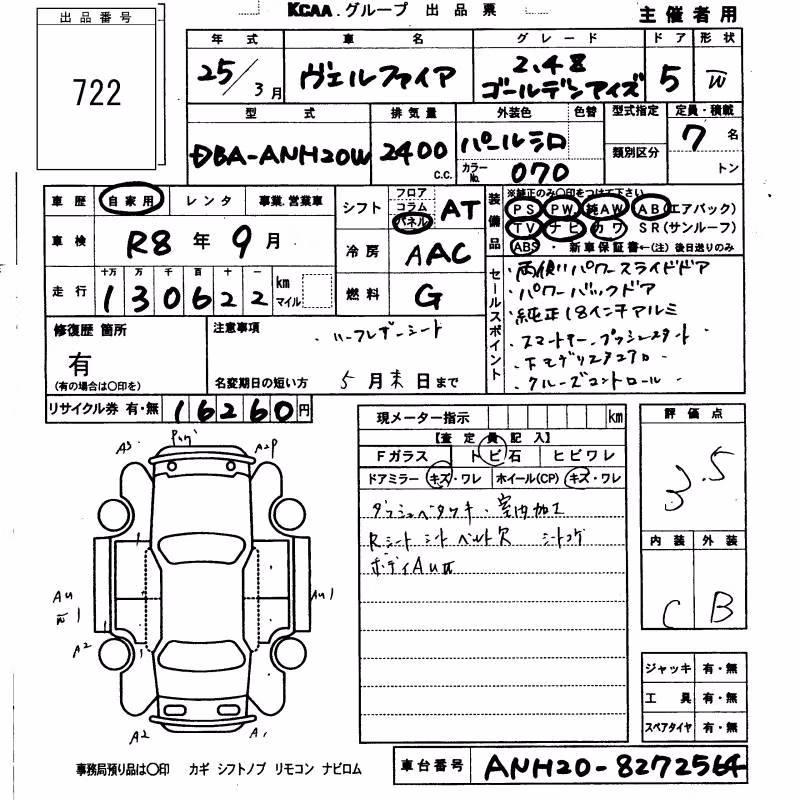 KCAA.グループ 出品票
主催者用
出品番号
722
年式 車名 グレード ドア 形状
25/3月 ヴェルファイア 2.4Z ゴールデンアイズ 5 W
型式 排気量 外装色 色替 型式指定 定員・積載
DBA-ANH20W 2400 c.c. パールシロ 類別区分 7名
カラーNo. 070 トン
車歴 自家用 レンタ 事業.営業車
車検 R8年9月
走行 十万 万 千 百 十 一
130622 km マイル
シフト フロア コラム パネル AT
冷房 AAC
燃料 G
装備品 ※純正のみ○印をつけて下さい
PS PW 純AW AB(エアバック)
TV ナビ カワ SR(サンルーフ)
ABS ・新車保証書←(注)後日送りのみ
セールスポイント
・両側パワースライドドア
・パワーバックドア
・純正18インチアルミ
・スマートキー.プッシュスタート
・クルーズコントロール
修復歴 箇所
有
(有の場合は○印を)
注意事項
・ハーフレザーシート
名変期日の短い方 5月末日まで
リサイクル券 有・無 16260円
現メーター指示 km
【査定員記入】
Fガラス トビ石 ヒビワレ
ドアミラー キズ・ワレ ホイール(CP) キズ・ワレ
ダッシュベタツキ・室内加工
Rシート シートベルト欠 シートコゲ
ボディAU
評価点
3.5
内装 外装
C B
A3 A2P
1 1
AU
W1
AU1
A2
A2 A1
ジャッキ 有・無
工具 有・無
スペアタイヤ 有・無
事務局預り品は○印 カギ シフトノブ リモコン ナビロム
車台番号 ANH20-8272564